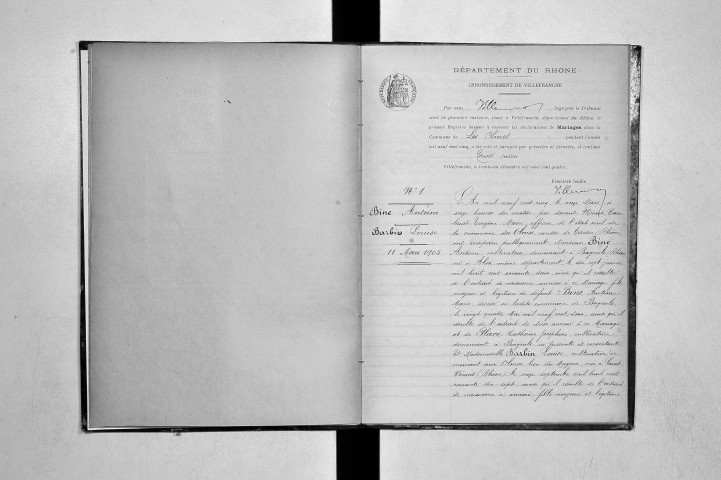 DÉPARTEMENT DU RHONE
ARRONDISSEMENT DE VILLEFRANCHE
Par nous, Juge près le Tribunal
civil de première instance, séant à Villefranche, département du Rhône, le
présent Registre destiné à recevoir les déclarations de Mariages dans la
Commune de Les Olmes pendant l'année
mil neuf cent cinq, a été coté et paraphé par première et dernière, et contient
feuillets
Villefranche, le décembre mil neuf cent quatre.
Première feuille
N° 1
Bine Antoine
Barbin Louise
11 Mars 1905
L'an mil neuf cent cinq, le onze Mars, à
onze heures du matin, par devant
Maire, officier de l'état civil de
la commune des Olmes, canton de Tarare, Rhône,
ont comparu publiquement Monsieur Bine
Antoine cultivateur, demeurant à Bagnols, Rhône
né à Alix, même département, le dix sept
mil huit cent soixante dix, ainsi qu'il résulte
de l'extrait de naissance annexé à ce Mariage, fils
majeur et légitime de défunt Bine Antoine
Marie, décédé en ladite commune de Bagnols,
le vingt quatre Mai mil neuf cent deux, ainsi qu'il
résulte de l'extrait de décès annexé à ce Mariage
et de Catherine Joséphine, cultivatrice
demeurant à Bagnols, ici présente et consentante,
Et Mademoiselle Barbin Louise, cultivatrice, de
meurant aux Olmes, lieu du Magnin, née à Saint
Vérand (Rhône) le onze septembre mil huit cent
soixante dix sept, ainsi qu'il résulte de l'extrait
de naissance annexé, fille majeure et légitime